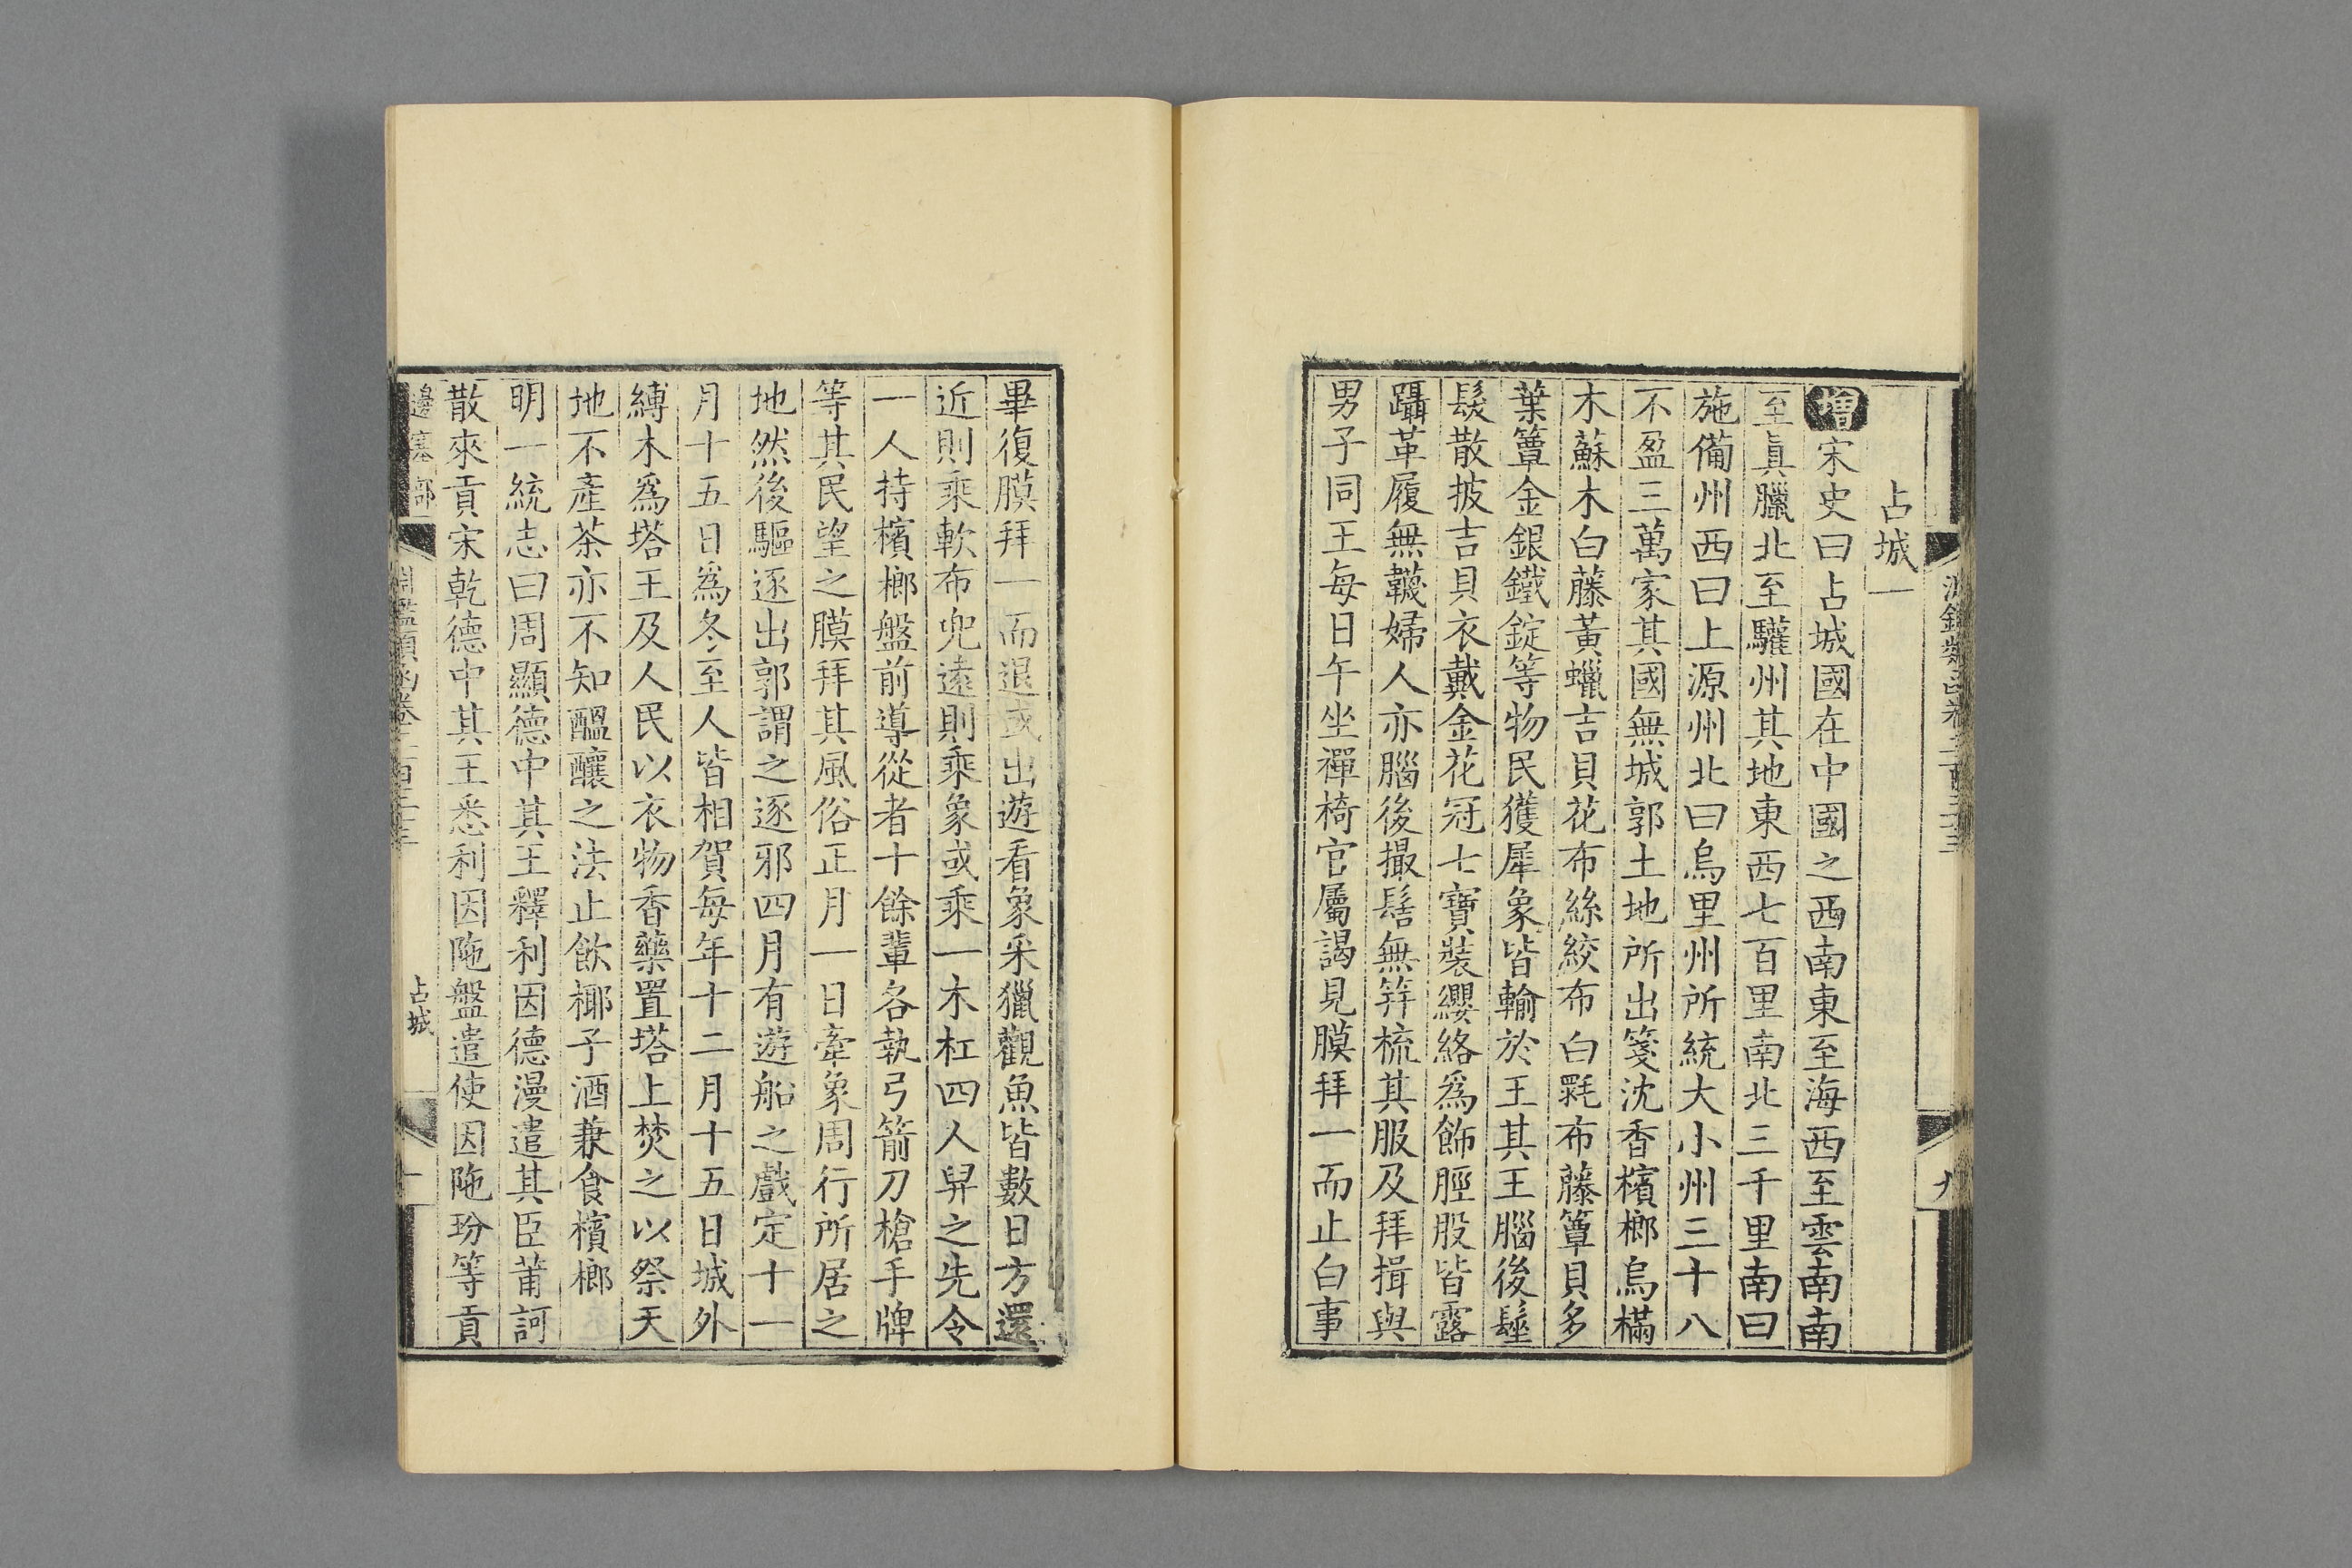 占城一
增宋史曰占城國在中國之西南東至海西至雲南南
至真臘北至驩州其地東西七百里南北三千里南曰
施備州西曰上源州北曰烏里州所統大小州三十八
不盈三萬家其國無城郭土地所出箋沈香檳榔烏樠
木蘇木白藤黃蠟吉貝花布絲絞布白氎布藤簟貝多
葉簟金銀鐵錠等物民獲犀象皆輸於王其王腦後髽
髮散披吉貝衣戴金花冠七寶裝纓絡爲飾脛股皆露
躡革履無韈婦人亦腦後撮髻無筓梳其服及拜揖與
男子同王每日午坐禪椅官屬謁見膜拜一而止白事
畢復膜拜一而退或出遊看象采獵觀魚皆數日方還
近則乘軟布兜遠則乘象或乘一木杠四人舁之先令
一人持檳榔盤前導從者十餘輩各執弓箭刀槍手牌
等其民望之膜拜其風俗正月一日牽象周行所居之
地然後驅逐出郭謂之逐邪四月有遊船之戲定十一
月十五日爲冬至人皆相賀每年十二月十五日城外
縛木爲塔王及人民以衣物香藥置塔上焚之以祭天
地不產茶亦不知醞釀之法止飲椰子酒兼食檳榔
明一統志曰周顯德中其王釋利因德漫遣其臣莆訶
散來貢宋乾德中其王悉利因陁盤遣使因陁玢等貢
邊塞部
占城